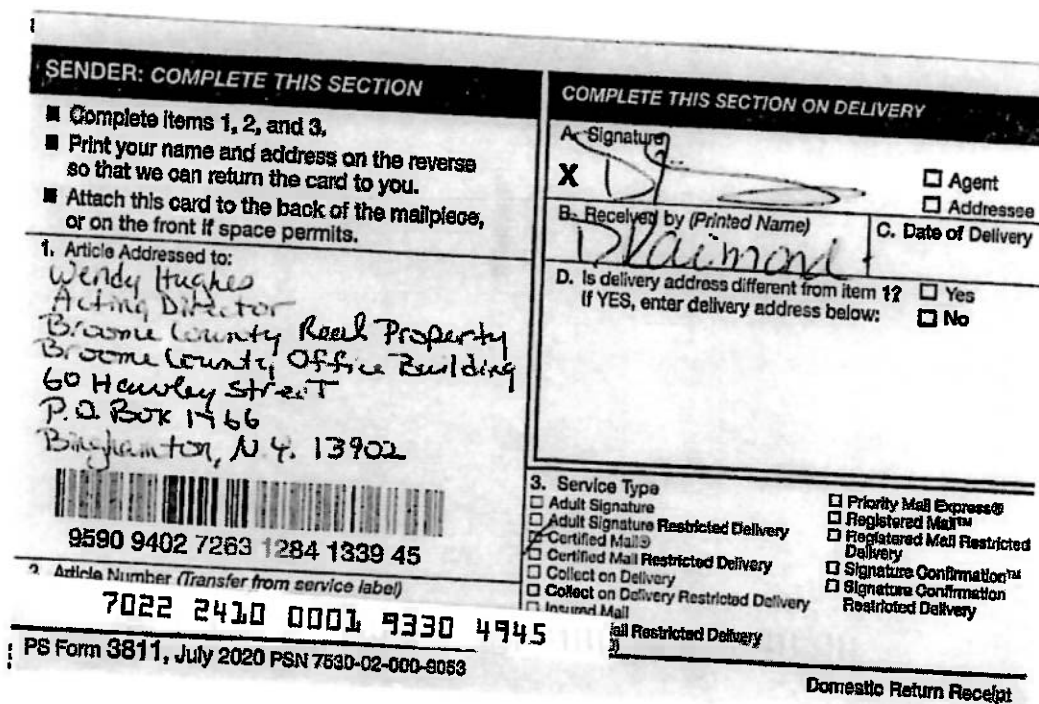 SENDER: COMPLETE THIS SECTION
■ Complete items 1, 2, and 3.
■ Print your name and address on the reverse
so that we can return the card to you.
■ Attach this card to the back of the mailpiece,
or on the front if space permits.
1. Article Addressed to:
Wendy Hughes
Acting Director
Broome County Real Property
Broome County Office Building
60 Hawley Street
P.O. Box 1766
Binghamton, N.Y. 13902
9590 9402 7263 1284 1339 45
2. Article Number (Transfer from service label)
7022 2410 0001 9330 4945
PS Form 3811, July 2020 PSN 7530-02-000-9053
COMPLETE THIS SECTION ON DELIVERY
A. Signature
X
□ Agent
□ Addressee
B. Received by (Printed Name)
C. Date of Delivery
D. Is delivery address different from item 1? □ Yes
If YES, enter delivery address below: □ No
3. Service Type
□ Adult Signature
□ Adult Signature Restricted Delivery
Certified Mail®
□ Certified Mail Restricted Delivery
□ Collect on Delivery
□ Collect on Delivery Restricted Delivery
□ Insured Mail
ail Restricted Delivery
□ Priority Mail Express®
□ Registered Mail™
□ Registered Mail Restricted
Delivery
□ Signature Confirmation™
□ Signature Confirmation
Restricted Delivery
Domestic Return Receipt